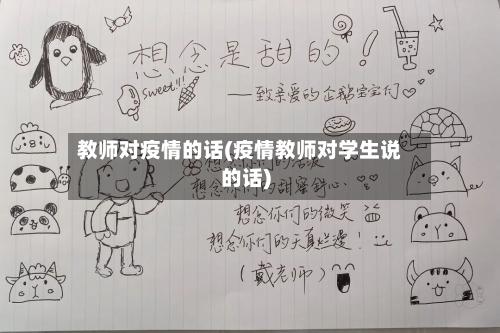 想念是甜的！
sweet!!!
——致亲爱的企鹅宝宝们
教师对疫情的话(疫情教师对学生说
的话)
想念你们的甜蜜舒心
想念你们的微笑
想念你们的天真烂漫！
（戴老师）